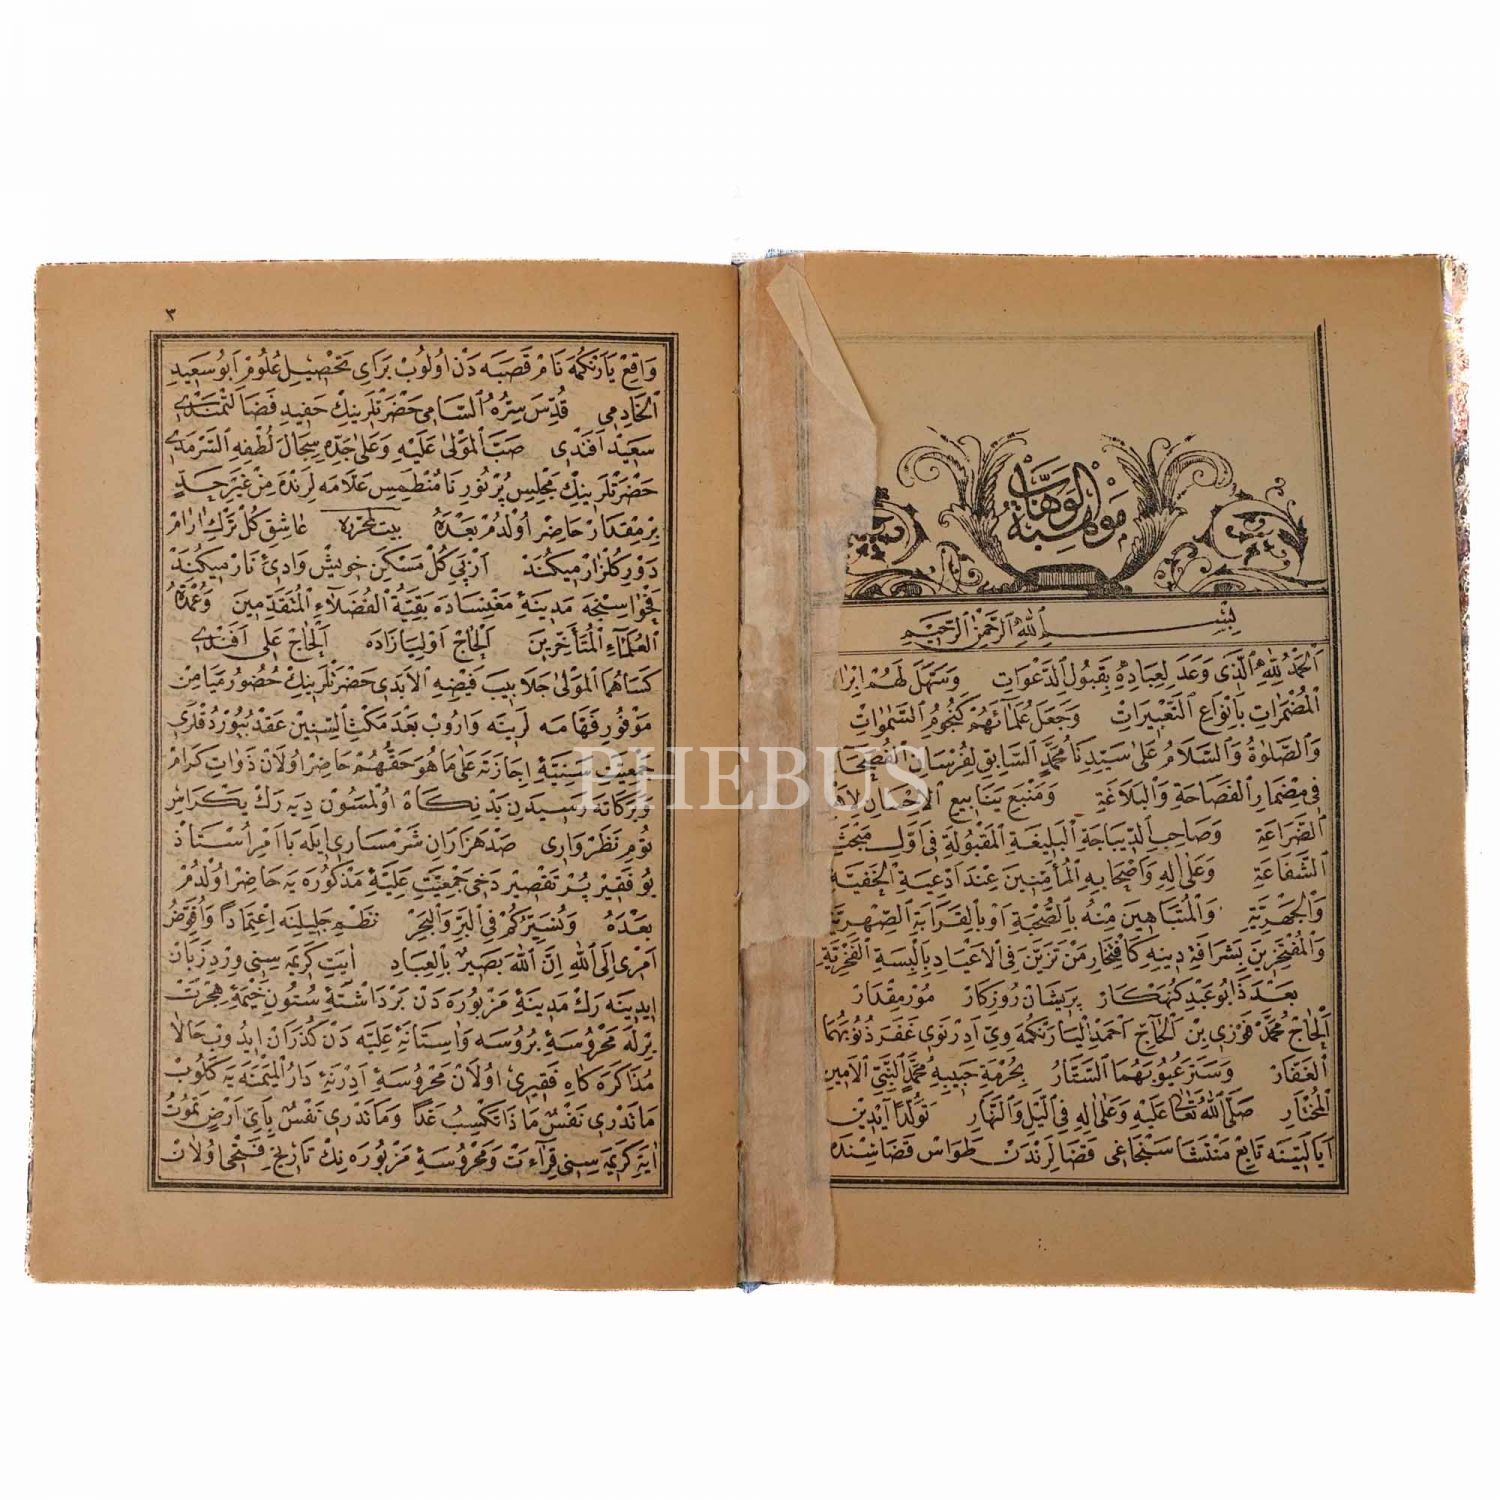 موهبة الوهاب
بِسْمِ اللهِ الرَّحْمٰنِ الرَّحِيمِ
اَلْحَمْدُ لِلّٰهِ الَّذِى وَعَدَ لِعِبَادِهِ بِقَبُولِ الدَّعَوَاتِ وَسَهَّلَ لَهُمْ اِبْرَا
الْمُضْمَرَاتِ بِاَنْوَاعِ التَّعْبِيرَاتِ وَجَعَلَ عُلَمَائَهُمْ كَنُجُومِ السَّمٰوَاتِ
وَالصَّلٰوةُ وَالسَّلَامُ عَلٰى سَيِّدِنَا مُحَمَّدٍ السَّابِقِ لِفُرْسَانِ الْفُصَحَا
فِى مِضْمَارِ الْفَصَاحَةِ وَالْبَلَاغَةِ وَمَنْبَعِ يَنَابِيعِ الْاِحْسَانِ
الضَّرَاعَةِ وَصَاحِبِ الدِّيبَاجَةِ الْبَلِيغَةِ الْمَقْبُولَةِ فِى اَوَّلِ مَبْحَثِ
الشَّفَاعَةِ وَعَلٰى اٰلِهِ وَاَصْحَابِهِ الْمُأَمِّنِينَ عِنْدَ اَدْعِيَةِ الْخَفِيَّةِ
وَالْجَهْرِيَّةِ وَالْمُتَبَاهِينَ مِنْهُ بِالصُّحْبَةِ اَوْ بِالْقَرَابَةِ الصِّهْرِيَّةِ
وَالْمُفْتَخِرِينَ بِشَرَافَةِ دِينِهِ كَافْتِخَارِ مَنْ تَزَيَّنَ فِى الْاَعْيَادِ بِاَلْبِسَةِ الْفَخْرِيَّةِ
بَعْدَ ذَا بُو عَبْدِ كُنَهْكَارْ پَرِيشَانْ رُوزْكَارْ مُورْ مِقْدَارْ
اَلْحَاجْ مُحَمَّدْ فَوْزِى بِنْ الْحَاجّ اَحْمَدْ الْيَارَنْكُمَهْ وِىّ اَدِرْنَوِى غَفَرَ ذُنُوبَهُمَا
الْغَفَّارْ وَسَتَرَ عُيُوبَهُمَا السَّتَّارُ بِحُرْمَةِ حَبِيبِهِ مُحَمَّدٍ النَّبِىِّ الْاَمِينِ
الْمُخْتَارِ صَلَّى اللهُ تَعَالَى عَلَيْهِ وَعَلٰى اٰلِهِ فِى اللَّيْلِ وَالنَّهَارِ تَوَلُّدًا اَيْدِينْ
اَيَالَتِينَهْ تَابِعْ مَنْتَشَا سَنْجَاغِى قَضَالَرِنْدَنْ طَوَاسْ قَضَاسِنْدَهْ
٣
وَاقِعْ يَارَنْكُمَهْ نَامْ قَصَبَهْ دَنْ اُولُوبْ بَرَاىِ تَحْصِيلِ عُلُومْ اَبُو سَعِيدِ
الْخَادِمِى قُدِّسَ سِرُّهُ السَّامِى حَضْرَتْلَرِينِكْ حَفِيدِ فَضَالَتْمَنْدِى
سَعِيدْ اَفَنْدِى صَبَّ الْمَوْلٰى عَلَيْهِ وَعَلٰى جَدِّهِ سِجَالَ لُطْفِهِ السَّرْمَدِى
حَضْرَتْلَرِينِكْ مَجْلِسِ پُرْنُورِ نَا مُنْطَمِسِ عَلَّامَهْ لَرِنْدَهْ مِنْ غَيْرِ حَدٍّ
بِرْ مِقْدَارْ حَاضِرْ اُولْدُمْ بَعْدَهُ بيت لمحرره عَاشِقِ كُلْ تَرْكِ اٰرَامْ
دَوْرِ كُلْزَارْ مِيكُنَدْ اَزْ پَىِ كُلْ مَسْكَنِ خِويشْ وَادِىٔ نَارْ مِيكُنَدْ
فَحْوَاسِنْجَهْ مَدِينَهٔ مَغْنِيسَادَهْ بَقِيَّةُ الْفُضَلَاءِ الْمُتَقَدِّمِينَ وَعُمْدَةُ
الْعُلَمَاءِ الْمُتَأَخِّرِينَ اَلْحَاجّ اَوْلِيَا زَادَهْ اَلْحَاجْ عَلِى اَفَنْدِى
كَسَاهُمَا الْمَوْلٰى جَلَابِيبَ فَيْضِهِ الْاَبَدِى حَضْرَتْلَرِينِكْ حُضُورِ مَيَامِنْ
مَوْفُورِ فَهَّامَهْ لَرِينَهْ وَارُوبْ بَعْدَ مَكْثِ السِّنِينْ عَقْدْ بُيُورْدُقْلَرِى
جَمْعِيَتِ سَنِيَّهٔ اِجَازَتَهْ عَلٰى مَا هُوَ حَقُّهُمْ حَاضِرْ اُولَانْ ذَوَاتِ كِرَامْ
وَبَرَكَاتَهْ رَسِيدَنْ بَدْ نِكَاهْ اُولْمَسُونْ دِيَهْ رَكْ يَكْرَاسْ
ثُومِ نَظَرْوَارِى صَدْ هَزَارَانِ شَرْمَسَارِى اِيلَهْ بَا اَمْرِ اُسْتَاذْ
بُو فَقِيرِ پُرْ تَقْصِيرْ دَخِى جَمْعِيَّتِ عَلِيَّهٔ مَذْكُورَهْ يَهْ حَاضِرْ اُولْدُمْ
بَعْدَهُ وَنُسَيِّرُكُمْ فِى الْبَرِّ وَالْبَحْرِ نَظْمِ جَلِيلِنَهْ اِعْتِمَادًا وَاُفَوِّضُ
اَمْرِى اِلَى اللهِ اِنَّ اللهَ بَصِيرٌ بِالْعِبَادِ اٰيَتِ كَرِيمَهْ سِنِى وِرْدِ زَبَانْ
اِيدِينَهْ رَكْ مَدِينَهٔ مَزْبُورَهْ دَنْ بَرْدَاشْتَهٔ سُتُونِ خَيْمَهٔ هِجْرَتْ
بِرْلَهْ مَحْرُوسَهٔ بُرُوسَهْ وَاٰسِتَانَهٔ عَلِيَّهْ دَنْ كُذَرَانْ اِيدُوبْ حَالَا
مُذَاكَرَهْ كَاهِ فَقِيرِى اُولَانْ مَحْرُوسَهٔ اَدِرْنَهٔ دَارُ الْمَيْمَنَهْ يَهْ كَلُوبْ
مَا تَدْرِى نَفْسٌ مَاذَا تَكْسِبُ غَدًا وَمَا تَدْرِى نَفْسٌ بِاَىِّ اَرْضٍ تَمُوتُ
اٰيَهٔ كَرِيمَهْ سِنِى قِرَاءَتْ وَمَحْرُوسَهٔ مَزْبُورَهْ نِكْ تَارِيخِ فَتْحِى اُولَانْ
PHEBUS